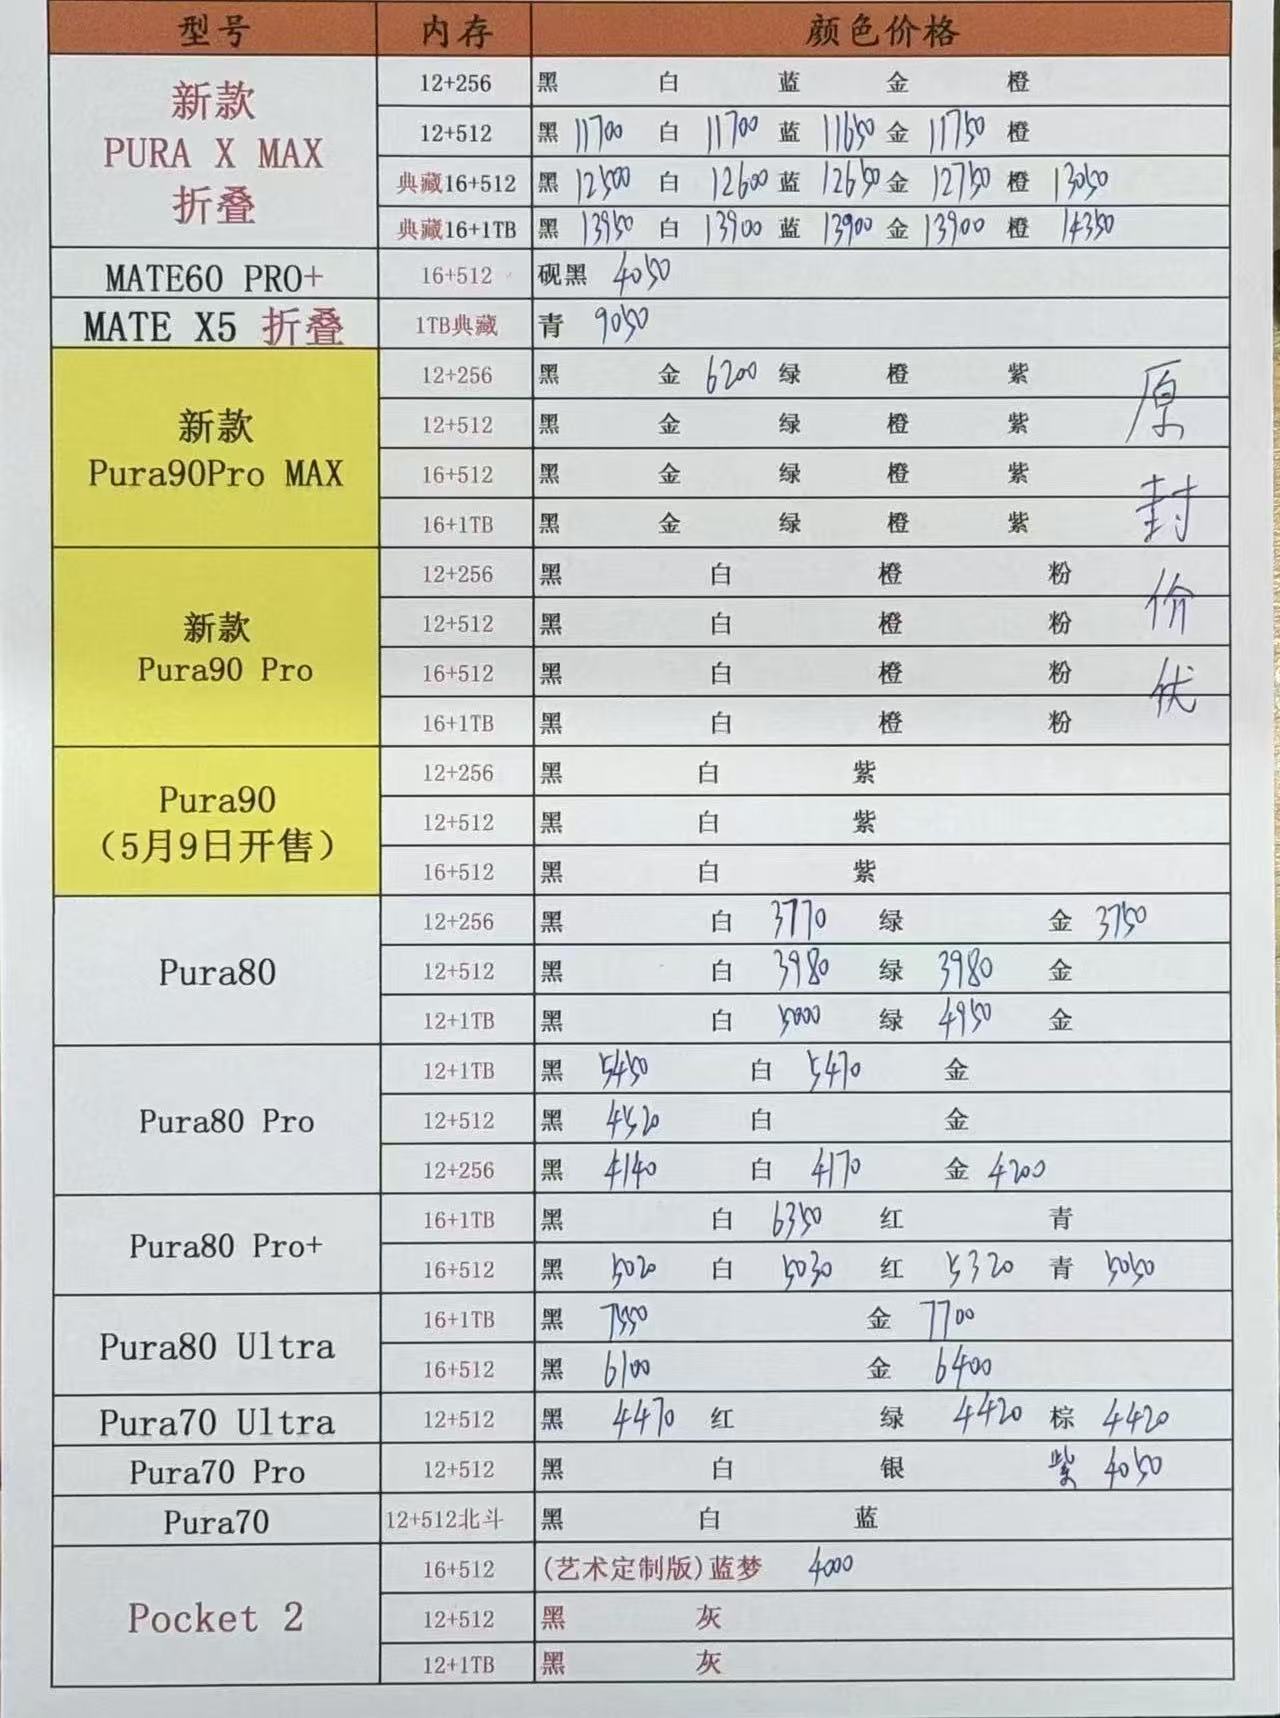 型号 内存 颜色价格
新款
PURA X MAX
折叠
12+256 黑 白 蓝 金 橙
12+512 黑 11700 白 11700 蓝 11650 金 11750 橙
典藏16+512 黑 12500 白 12600 蓝 12650 金 12750 橙 13050
典藏16+1TB 黑 13950 白 13900 蓝 13900 金 13900 橙 14350
MATE60 PRO+ 16+512 砚黑 4050
MATE X5 折叠 1TB典藏 青 9050
新款
Pura90Pro MAX
12+256 黑 金 6200 绿 橙 紫
12+512 黑 金 绿 橙 紫
16+512 黑 金 绿 橙 紫
16+1TB 黑 金 绿 橙 紫
原封价优
新款
Pura90 Pro
12+256 黑 白 橙 粉
12+512 黑 白 橙 粉
16+512 黑 白 橙 粉
16+1TB 黑 白 橙 粉
Pura90
（5月9日开售）
12+256 黑 白 紫
12+512 黑 白 紫
16+512 黑 白 紫
Pura80
12+256 黑 白 3770 绿 金 3750
12+512 黑 白 3980 绿 3980 金
12+1TB 黑 白 5000 绿 4950 金
Pura80 Pro
12+1TB 黑 5450 白 5470 金
12+512 黑 4520 白 金
12+256 黑 4140 白 4170 金 4200
Pura80 Pro+
16+1TB 黑 白 6350 红 青
16+512 黑 5020 白 5030 红 5320 青 5050
Pura80 Ultra
16+1TB 黑 7550 金 7700
16+512 黑 6100 金 6400
Pura70 Ultra 12+512 黑 4470 红 绿 4420 棕 4420
Pura70 Pro 12+512 黑 白 银 紫 4050
Pura70 12+512北斗 黑 白 蓝
Pocket 2
16+512 (艺术定制版)蓝梦 4000
12+512 黑 灰
12+1TB 黑 灰